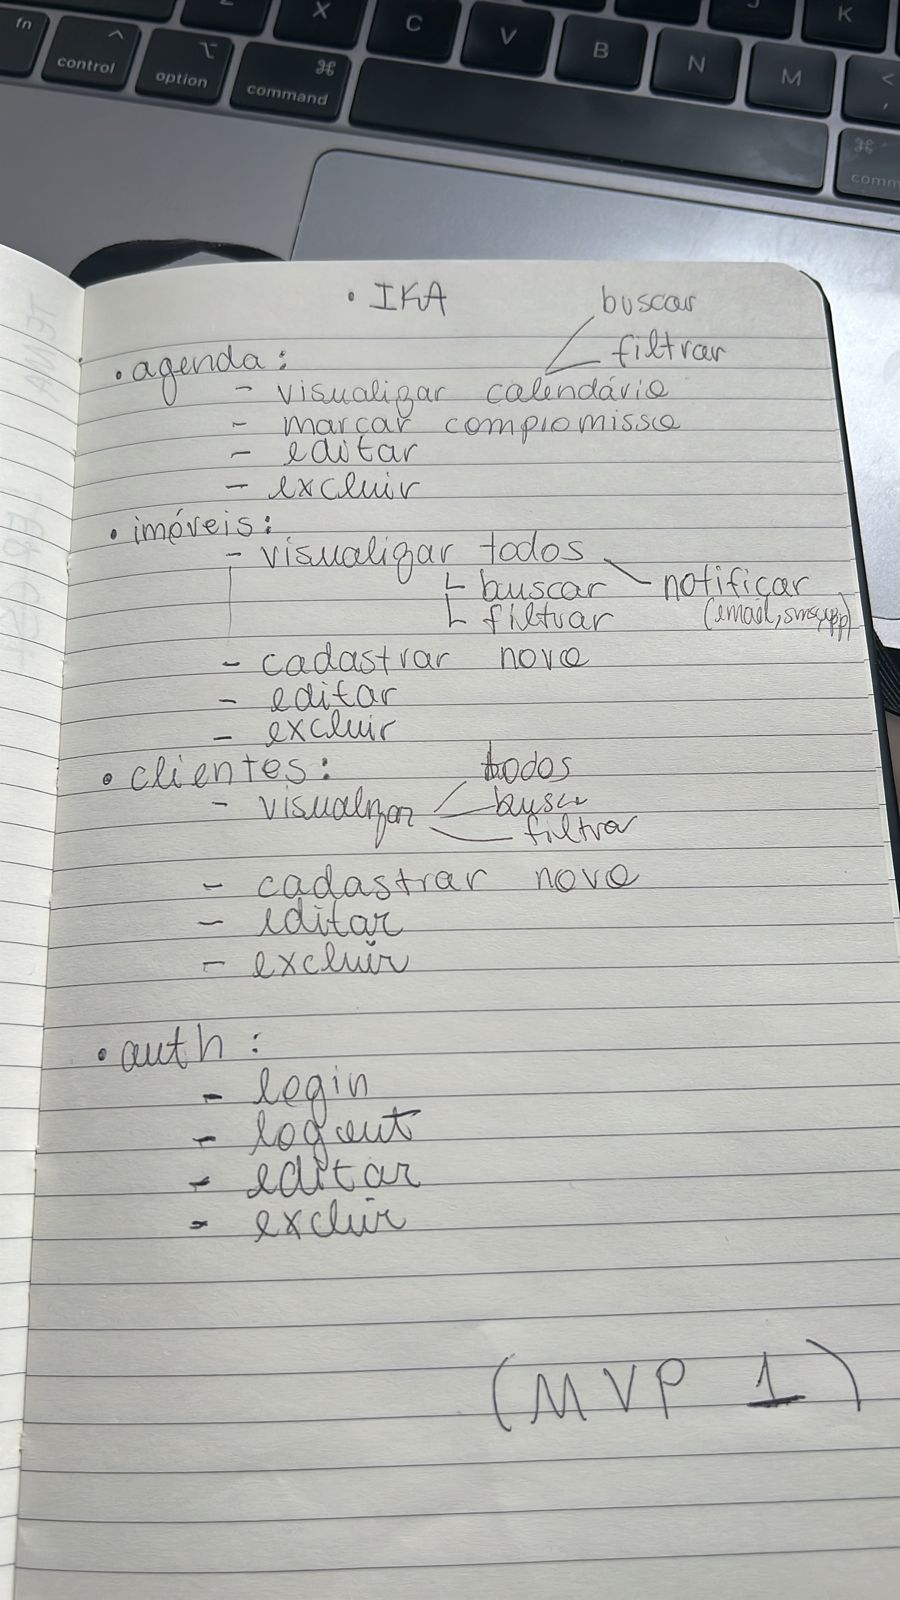 fn
control
option
command
X
C
V
B
N
M
K
<
,
comm
• IKA
buscar
filtrar
• agenda:
- visualizar calendário
- marcar compromisso
- editar
- excluir
• imóveis:
- visualizar todos
buscar
notificar
filtrar
(email, sms, app)
- cadastrar novo
- editar
- excluir
• clientes:
todos
- visualizar
busca
filtrar
- cadastrar novo
- editar
- excluir
• auth:
- login
- logout
- editar
- excluir
(MVP 1)